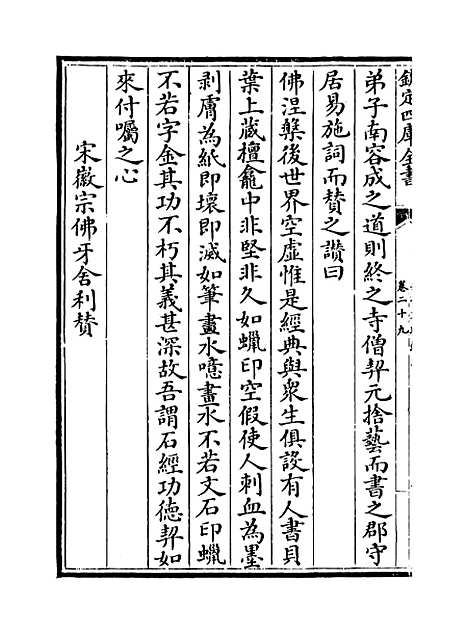 欽定四庫全書
卷二十九
弟子南容成之道則終之寺僧契元捨藝而書之郡守
居易施詞而贊之讚曰
佛涅槃後世界空虛惟是經典與衆生俱設有人書貝
葉上藏檀龕中非堅非久如蠟印空假使人刺血為墨
剥膚為紙即壞即滅如筆畫水噫畫水不若文石印蠟
不若字金其功不朽其義甚深故吾謂石經功德契如
來付囑之心
宋徽宗佛牙舍利贊